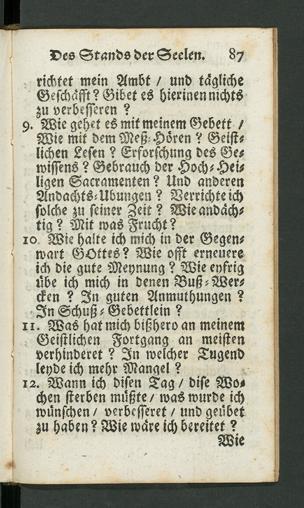 Des Stands der Seelen. 87
richtet mein Ambt / und tägliche
Geschäfft? Gibet es hierinen nichts
zu verbesseren?
9. Wie gehet es mit meinem Gebett /
Wie mit dem Meß-Hören? Geist-
lichen Lesen? Erforschung des Ge-
wissens? Gebrauch der Hoch-Hei-
ligen Sacramenten? Und anderen
Andachts-Ubungen? Verrichte ich
solche zu seiner Zeit? Wie andäch-
tig? Mit was Frucht?
10. Wie halte ich mich in der Gegen-
wart GOttes? Wie offt erneuere
ich die gute Meynung? Wie eyfrig
übe ich mich in denen Buß-Wer-
cken? In guten Anmuthungen?
In Schuß-Gebettlein?
11. Was hat mich bißhero an meinem
Geistlichen Fortgang an meisten
verhinderet? In welcher Tugend
leyde ich mehr Mangel?
12. Wann ich disen Tag / dise Wo-
chen sterben müßte / was wurde ich
wünschen / verbesseret / und geübet
zu haben? Wie wäre ich bereitet?
Wie